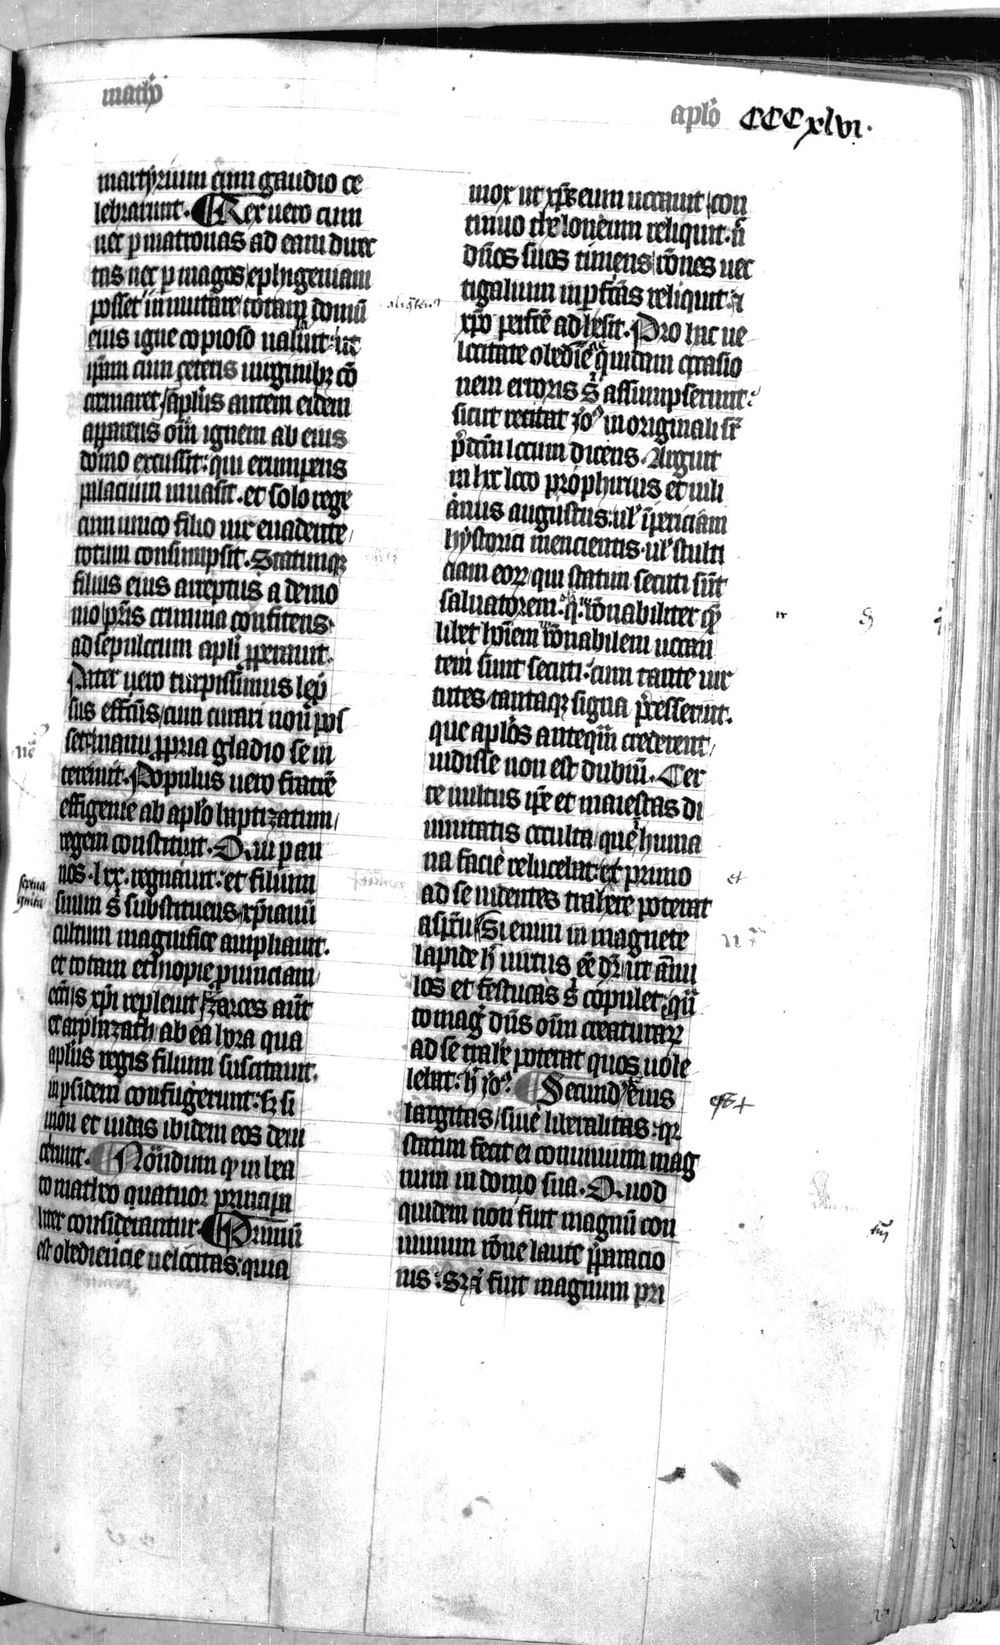 math
aplo CCCxlvi.
martyrium cum gaudio ce
lebrarunt. Rex uero cum
nec p matronas ad eam duct
tas nec p magos ephigeniam
posset inmutare totam domū
eius igne copioso uallauit ut
ipam cum ceteris uirginibȝ cō
cremaret aplus autem eidem
apparens oēm ignem ab eius
domo excussit: qui erumpens
palacium inuasit. et solo rege
cum unico filio uix euadente
totum consumpsit. Statimqȝ
filius eius arreptus a demo
nio pris crimina confitens
ad sepulcrum apli pperauit.
Pater uero turpissimus lep
sus effcūs cum curari non pos
set manu ppria gladio se in
teremit. Populus uero fratrē
effigenie ab aplo baptizatum
regem constituit. Qui p an
nos. lxx. regnauit: et filium
suum s substituens xpianū
cultum magnifice ampliauit.
et totam ethiopie prouinciam
ecciis xpi repleuit zarœs aūt
et arphazath ab ea hora qua
aplus regis filium suscitauit.
in psidem confugerunt: sȝ si
mon et iudas ibidem eos deui
cerunt. Notandum qȝ in bea
to matheo quatuor principa
liter considerantur. Primū
est obediencie uelocitas: quia
mox ut xps eum uocauit con
tinuo theloneum reliquit. n
dños suos timens rōnes uec
tigalium inpfctas reliquit. et
xpo pfcte adhesit. Pro hac ue
locitate obedie quidam occasio
nem erroris s assumpserunt
sicut recitat Jo in originali sr
pdcm locum dicens. Arguit
in hc loco prophirius et iuli
anus augustus. ul inpericiam
hystorici mencientis. ul stulti
ciam eorȝ qui statim secuti sūt
saluatorem. q irronabiliter qȝ
libet hoiem ronabilem uocan
tem sunt secuti. cum tante uir
tutes tantaqȝ signa precesserint.
que aplos antequm crederent
uidisse non est dubiū. Cer
te uultus ipe et maiestas di
uinitatis occulta que huma
na facie relucebat et primo
ad se uidentes trahere poterat
aspctu Si enim in magnete
lapide h uirtus eē dr. ut anu
los et festucas s copulet. qn
to mag dūs oium creaturarȝ
ad se trahe poterat quos uole
bat. h Jo. Secund eius
largitas siue liberalitas. qȝ
statim fecit ei conuiuium mag
num in domo sua. Quod
quidem non fuit magnū con
uiuium rōne laute pparacio
nis. Sȝ fuit magnum pri
septua
ginta
et